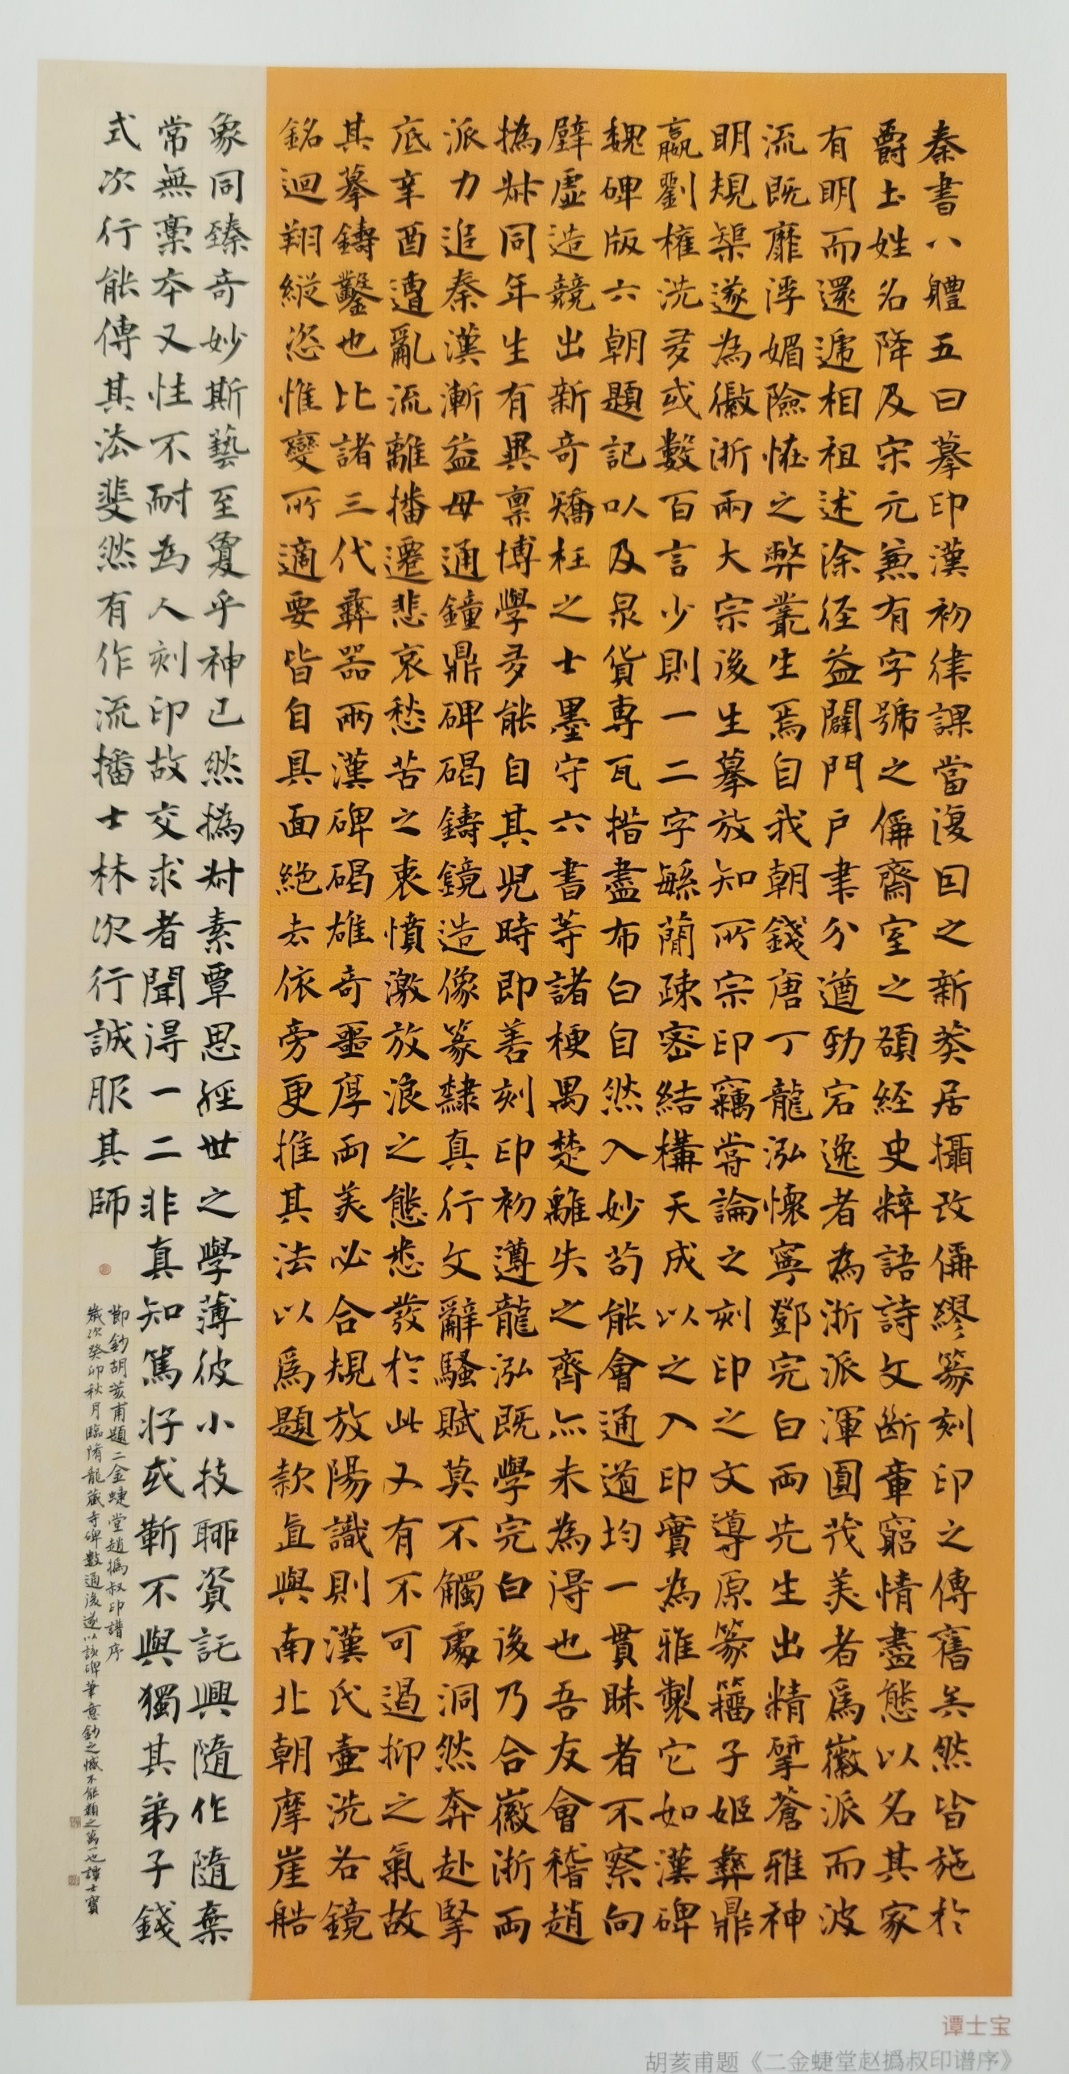 秦書八體五曰摹印漢初律課當復因之新莽居攝改俑繆篆刻印之傳舊矣然皆施於
爵土姓名降及宋元兼有字號之俑齋室之額經史粹語詩文斷章窮情盡態以名其家
有明而還遞相祖述涂徑益闢門戶聿分遒勁宕逸者為浙派渾圓茂美者為徽派而波
流既靡浮媚險怪之弊叢生焉自我朝錢唐丁龍泓懷寧鄧完白兩先生出精擘蒼雅神
明規榘遂為徽浙兩大宗後生摹放知所宗印竊嘗論之刻印之文導原篆籀子姬彝鼎
嬴劉權洗多或數百言少則一二字緐蕑疎密結構天成以之入印實為雅製它如漢碑
魏碑版六朝題記以及泉貨専瓦措盡布白自然入妙苟能會通道均一貫昧者不察向
壁虛造競出新奇矯枉之士墨守六書等諸梗禺楚離失之齊亦未為得也吾友會稽趙
撝尗同年生有異禀博學多能自其兒時即善刻印初遵龍泓既學完白後乃合徽浙兩
派力追秦漢漸益毋通鐘鼎碑碣鑄鏡造像篆隸真行文辭騷賦莫不觸處洞然奔赴掔
底辛酉遭亂流離播遷悲哀愁苦之衷憤激放浪之態悉發於此又有不可遏抑之氣故
其摹鑄鑿也比諸三代彝器兩漢碑碣雄奇噩厚兩美必合規放陽識則漢氏壷洗若鏡
銘迴翔縱恣惟變所適要皆自具面絕去依旁更推其法以為題款直與南北朝摩崖船
象同臻奇妙斯藝至夐乎神已然撝尗素覃思經世之學薄彼小技聊資託興隨作隨棄
常無稾本又性不耐為人刻印故交求者聞得一二非真知篤好或靳不與獨其弟子錢
式次行能傳其法斐然有作流播士林次行誠服其師
節鈔胡荄甫題二金蜨堂趙撝叔印譜序
歲次癸卯秋月臨隋龍藏寺碑數通後遂以該碑筆意鈔之憾不能類之萬一也譚士寶
谭士宝
胡荄甫题《二金蜨堂赵撝叔印谱序》